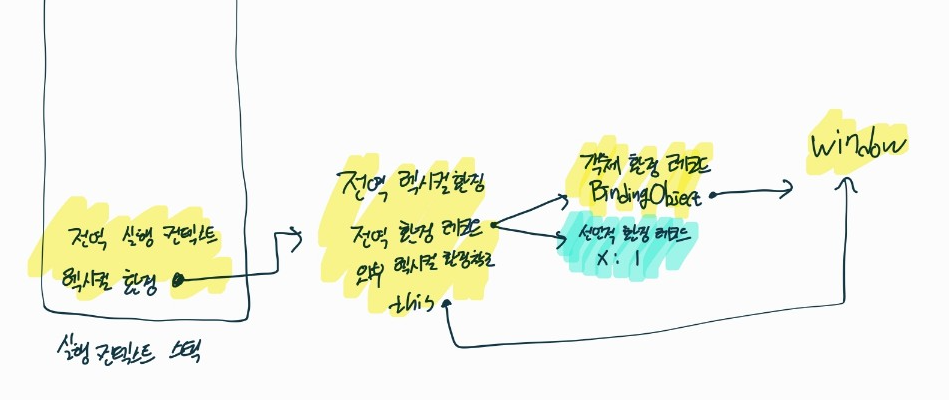 전역 실행 컨텍스트
렉시컬 환경
실행 컨텍스트 스택
전역 렉시컬 환경
전역 환경 레코드
외부 렉시컬 환경참조
this
객체 환경 레코드
BindingObject
선언적 환경 레코드
x: 1
window